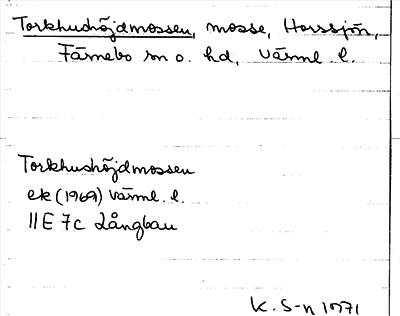 Torkhushöjdmossen, mosse, Horssjön,
Färnebo sn o. hd, Värml. l.
Torkhushöjdmossen
ek (1969) Värml. l.
11E 7c Långban
K. S-n 1971